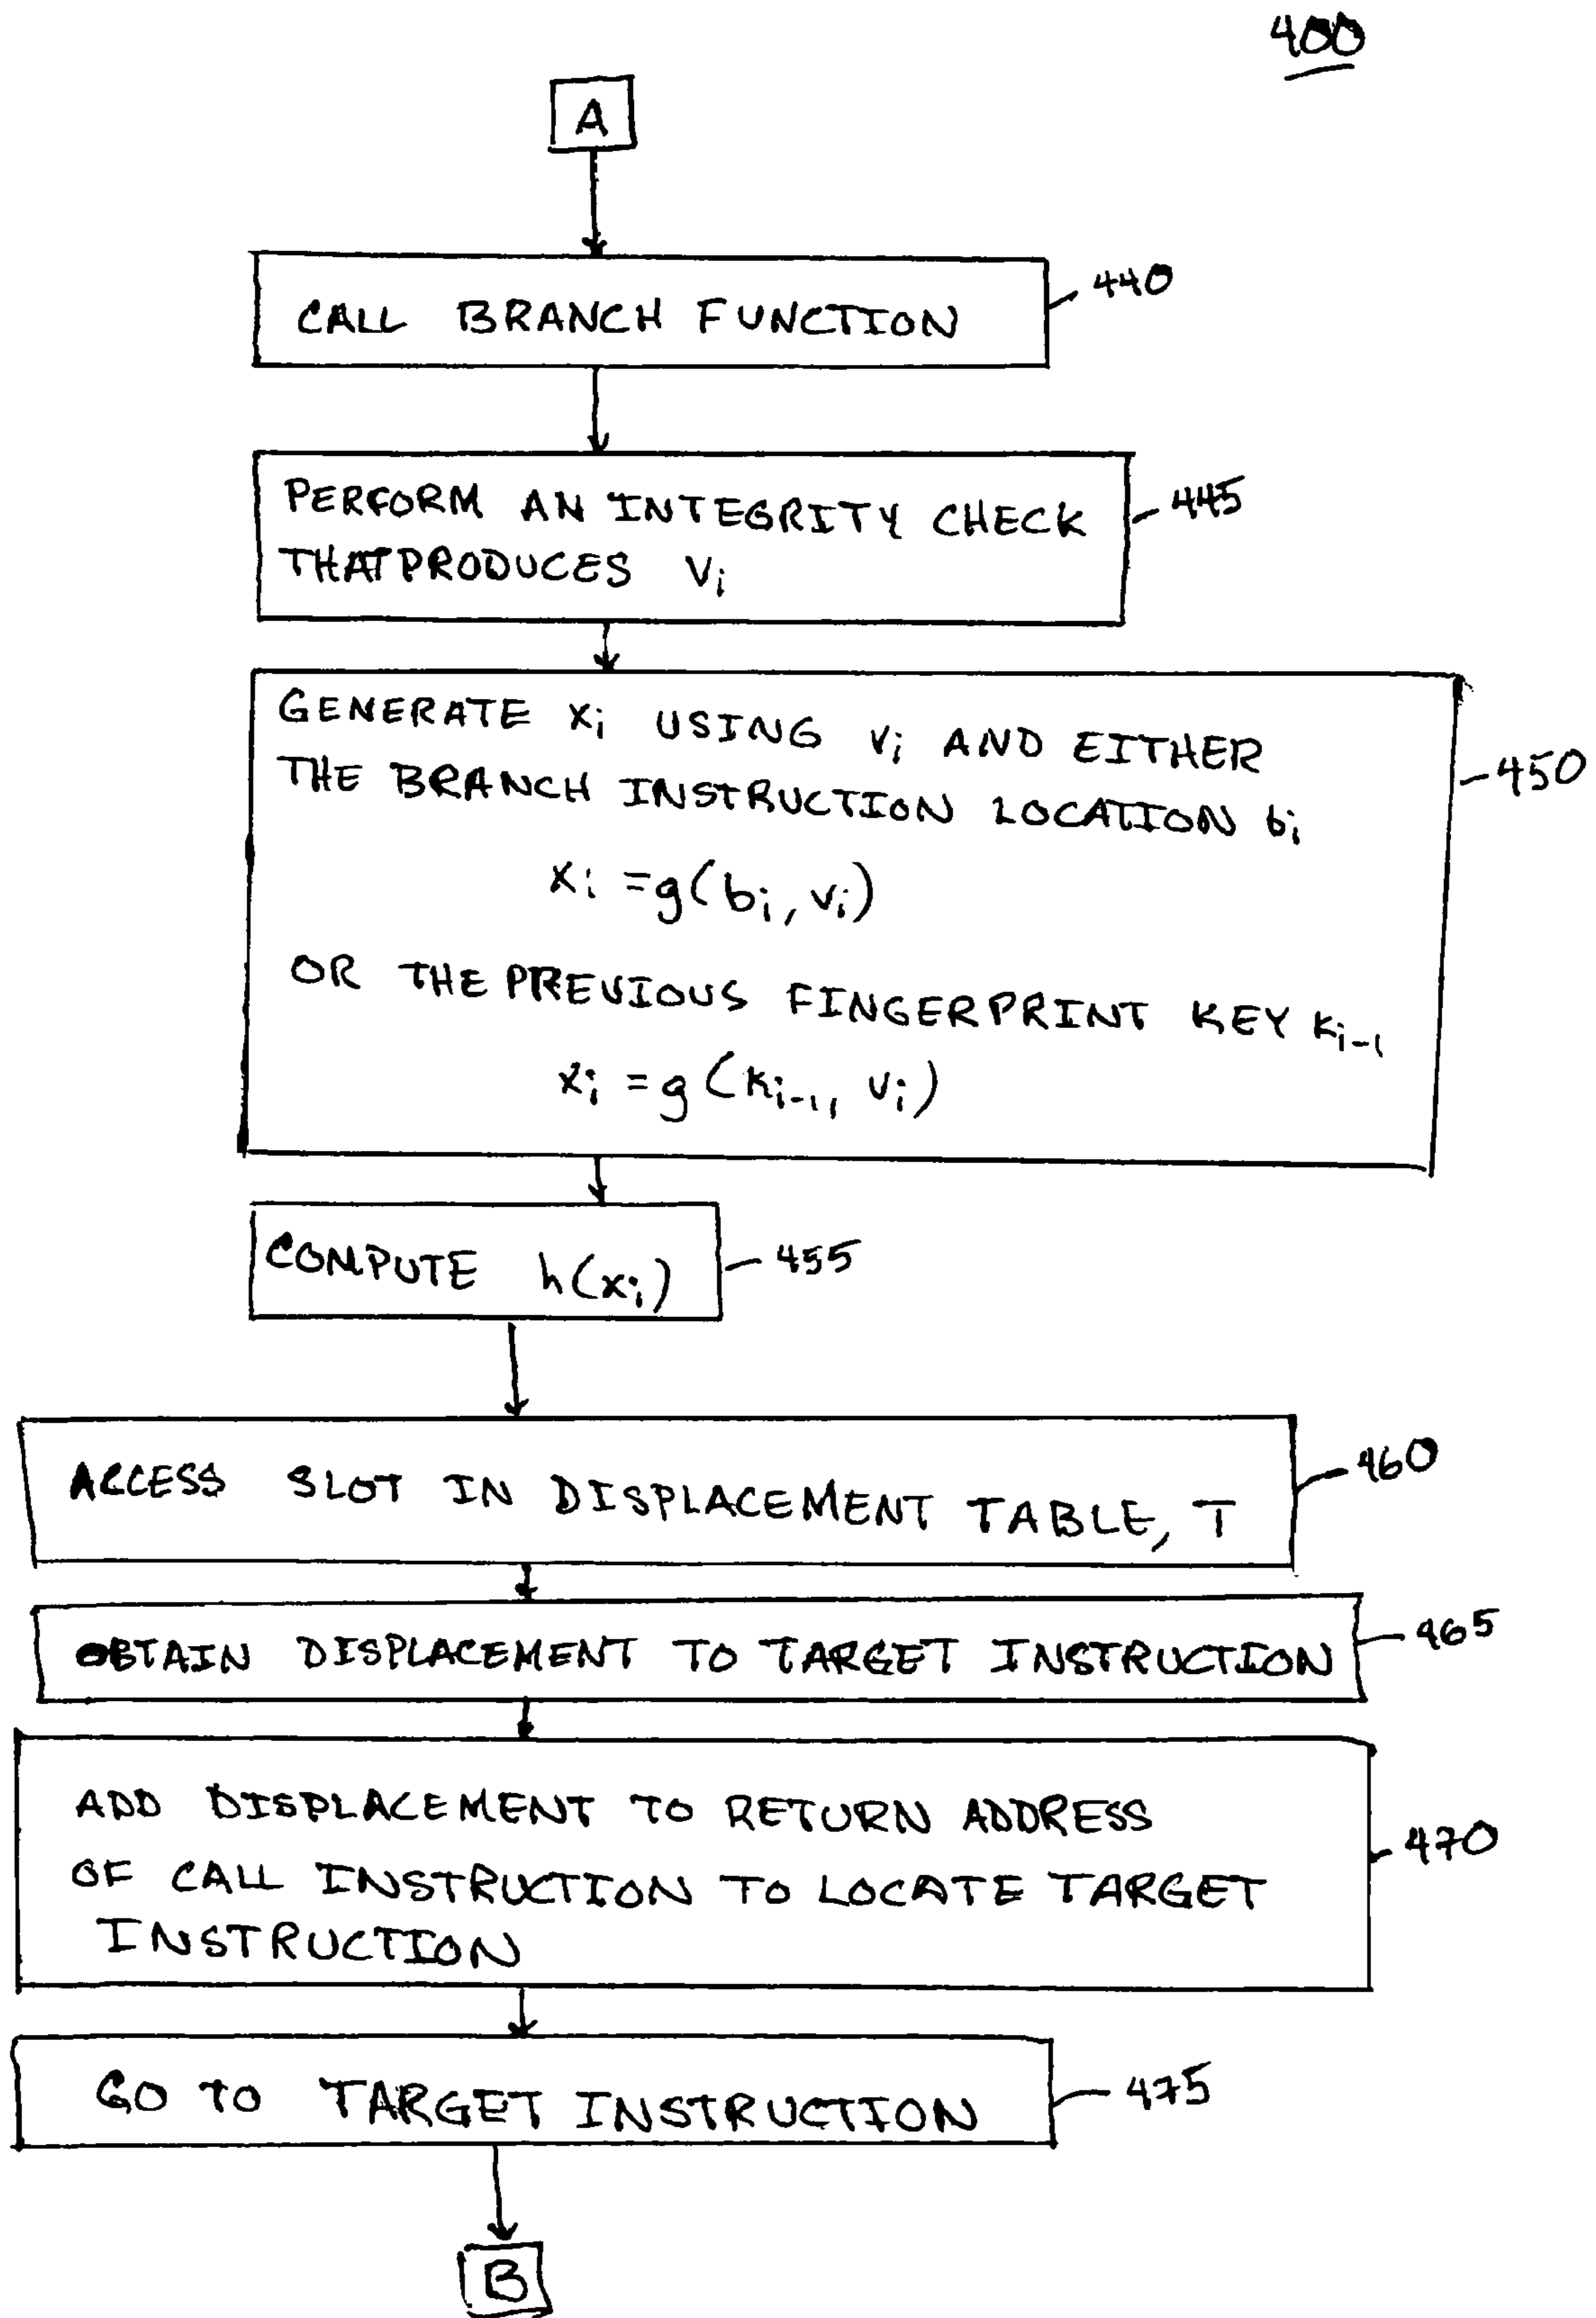 400
A
CALL BRANCH FUNCTION
440
PERFORM AN INTEGRITY CHECK
THAT PRODUCES vᵢ
445
GENERATE xᵢ USING vᵢ AND EITHER
THE BRANCH INSTRUCTION LOCATION bᵢ
xᵢ = g(bᵢ, vᵢ)
OR THE PREVIOUS FINGERPRINT KEY kᵢ₋₁
xᵢ = g(kᵢ₋₁, vᵢ)
450
COMPUTE h(xᵢ)
455
ACCESS SLOT IN DISPLACEMENT TABLE, T
460
OBTAIN DISPLACEMENT TO TARGET INSTRUCTION
465
ADD DISPLACEMENT TO RETURN ADDRESS
OF CALL INSTRUCTION TO LOCATE TARGET
INSTRUCTION
470
GO TO TARGET INSTRUCTION
475
B